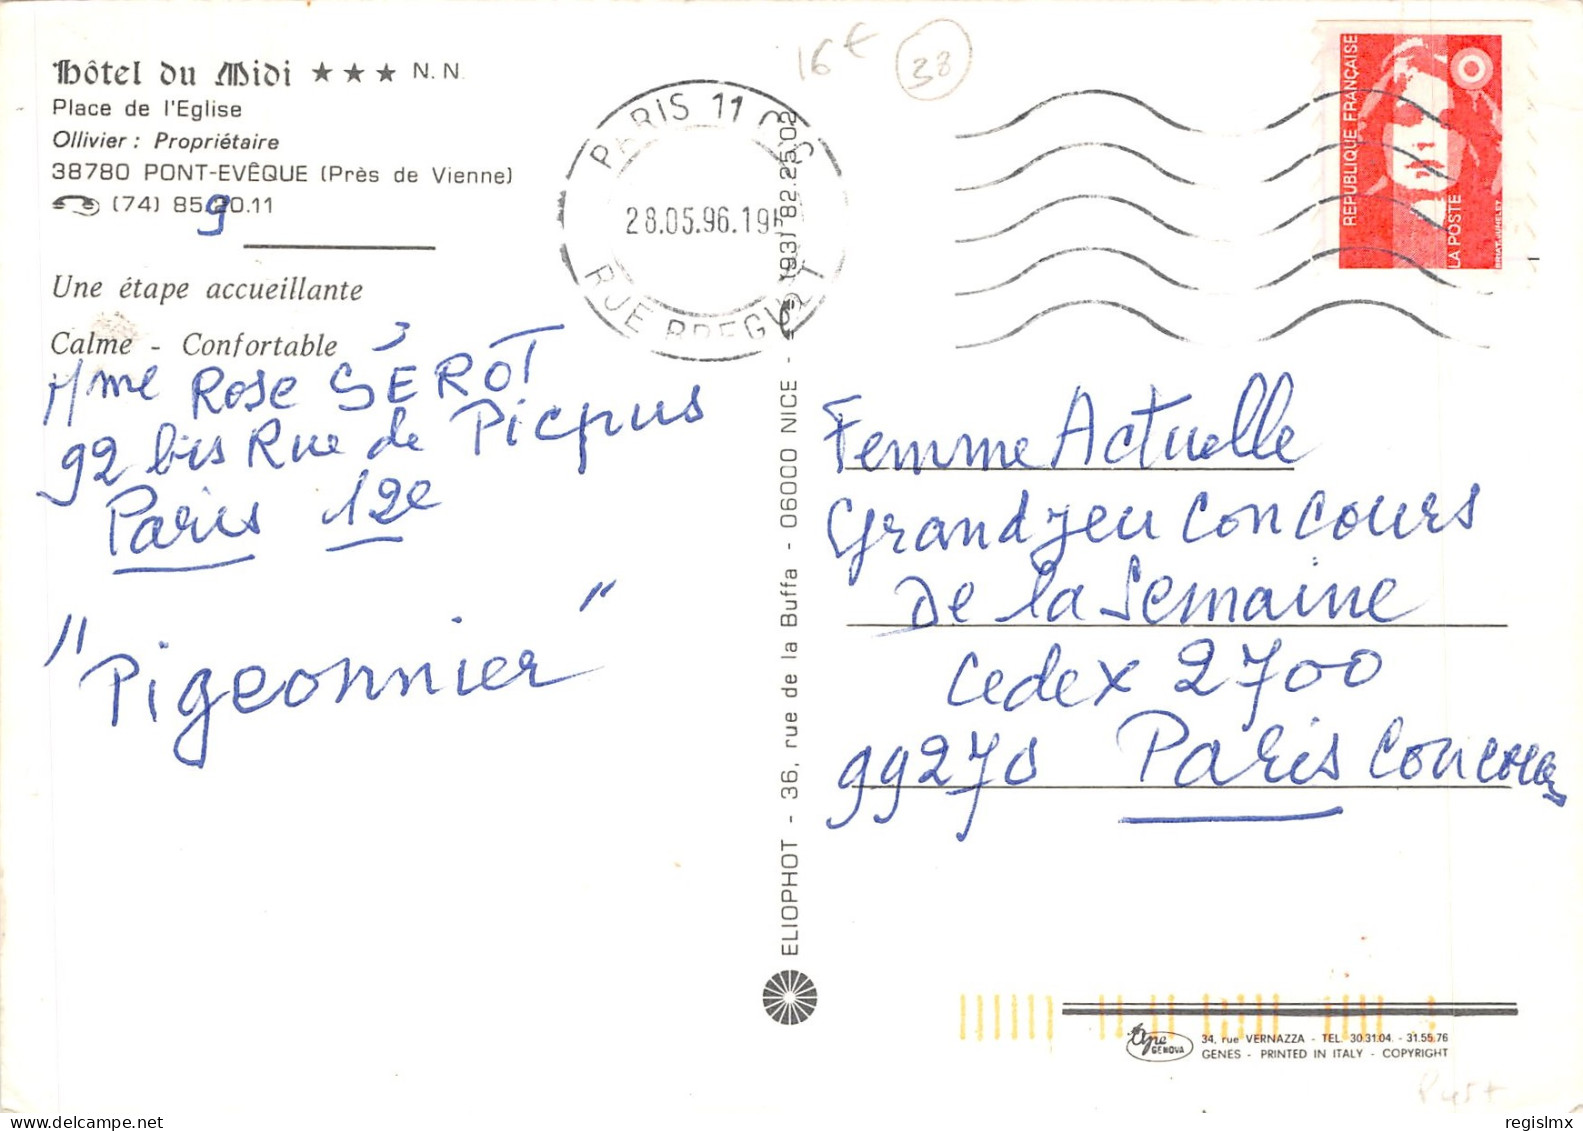 Hôtel du Midi ★★★ N.N.
Place de l'Eglise
Ollivier : Propriétaire
38780 PONT-EVÊQUE (Près de Vienne)
(74) 85.20.11
9
Une étape accueillante
Calme - Confortable
Mme ROSE SÉROT
92 bis Rue de Picpus
Paris 12e
"Pigeonnier"
16€
38
PARIS 11 CDS
28.05.96.19H
RUE BREGUET
ELIOPHOT - 36, rue de la Buffa - 06000 NICE - (93) 82.25.02
REPUBLIQUE FRANÇAISE
LA POSTE
Femme Actuelle
Grand jeu concours
De la Semaine
Cedex 2700
99270 Paris Concours
GENOVA
34, rue VERNAZZA - TEL. 30.31.04. - 31.55.76
GENES - PRINTED IN ITALY - COPYRIGHT
regislmx